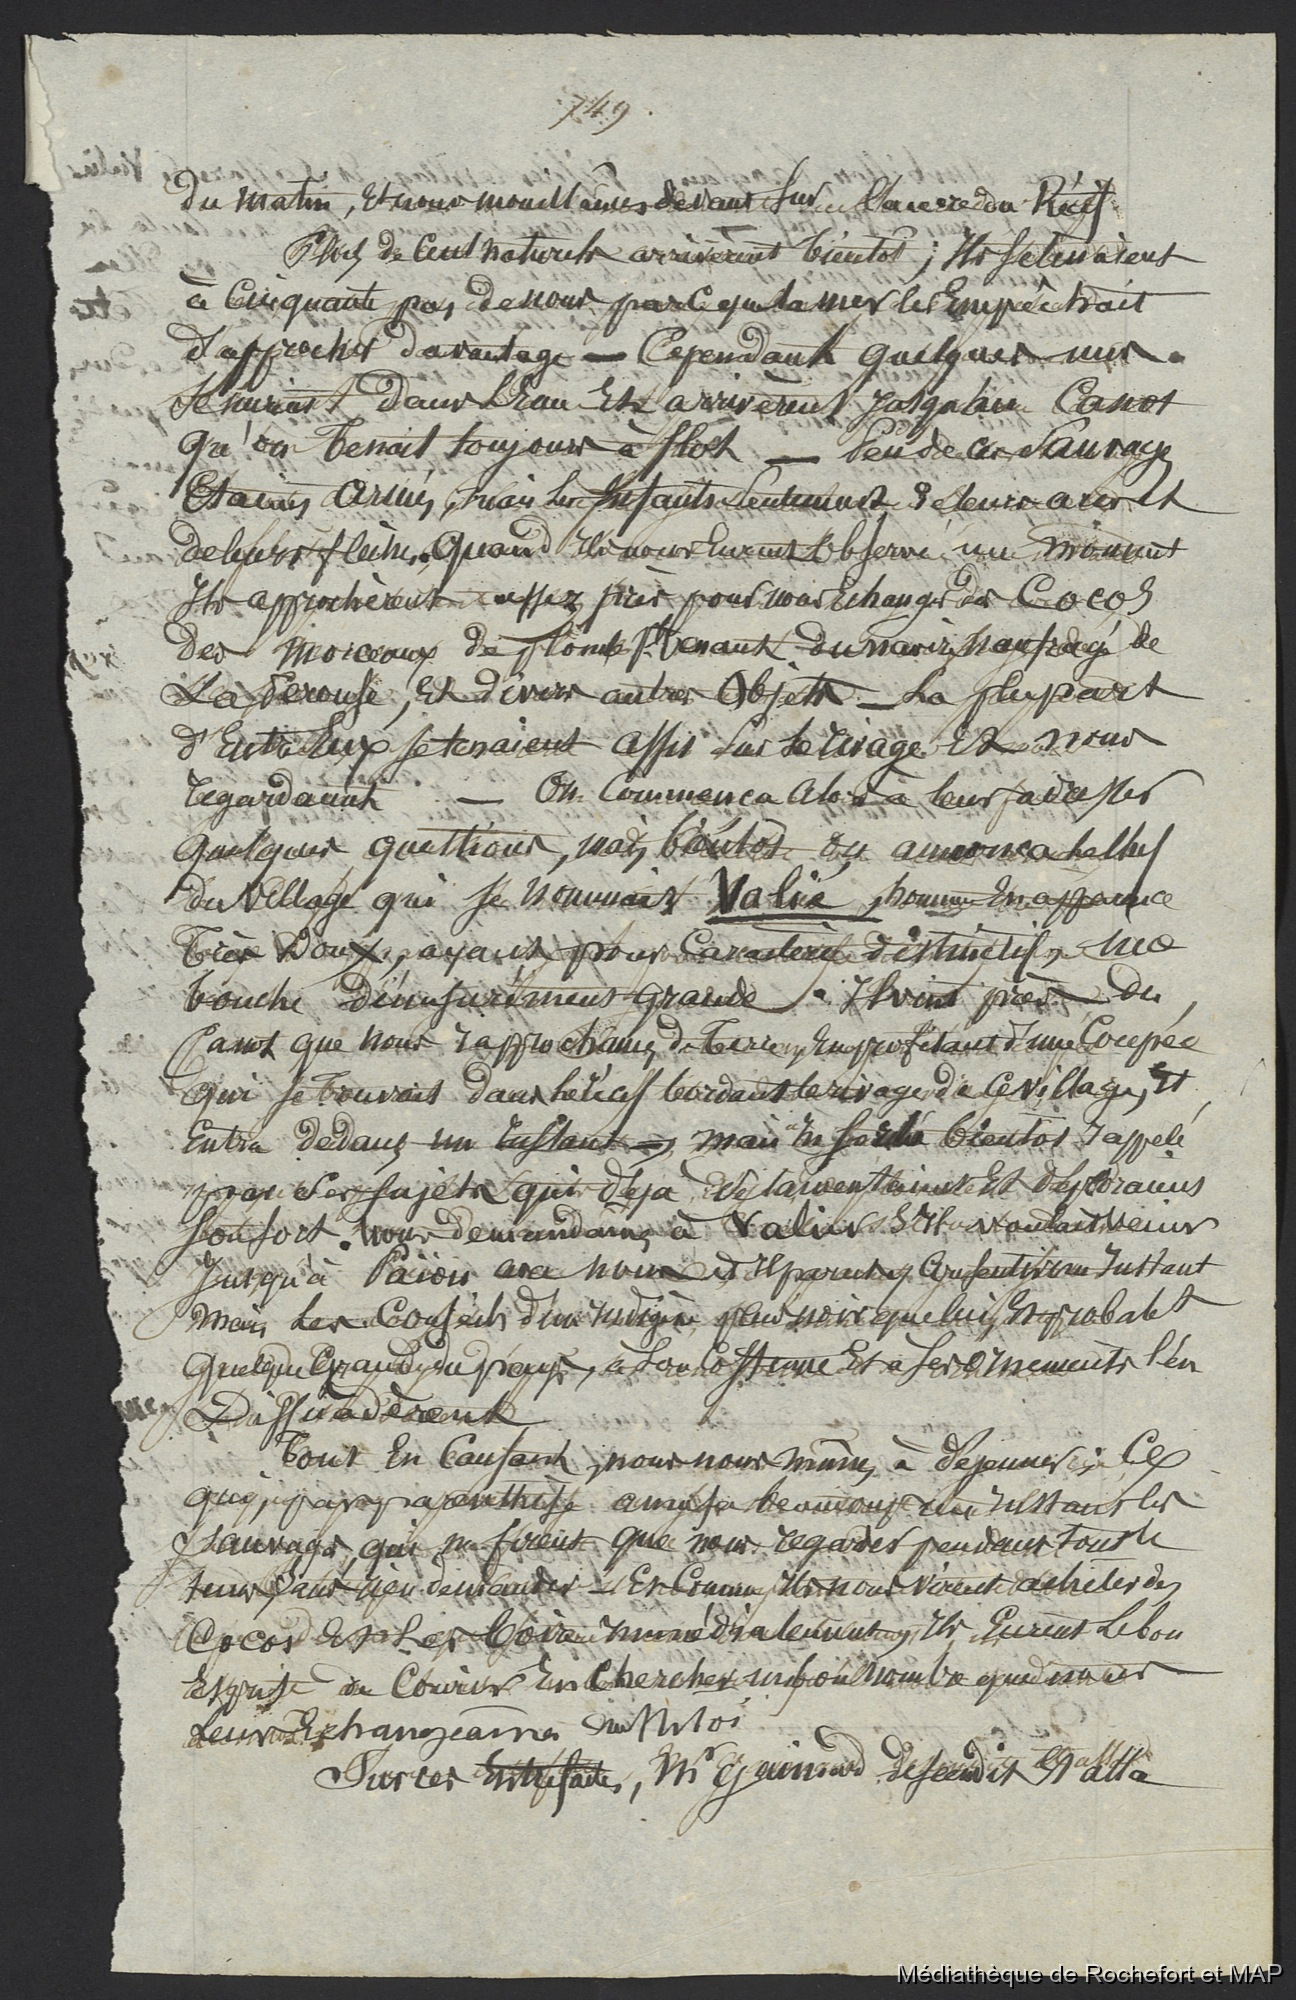 749.
du matin, Et nous mouillames devant sur l'accore du Récif
Plus de Cent naturels arrivèrent bientot ; Ils se tenaient
à Cinquante pas de nous parceque la mer les Empêchait
d'approcher davantage — Cependant quelques uns
se mirent dans l'Eau Et arrivèrent Jusqu'au Canot
qu'on tenait toujours à flot — Peu de ces Sauvages
Etaient Armés, mais les Enfants seulement de leurs arcs Et
de leurs flèches. Quand Ils nous Eurent Observé un moment
Ils approchèrent assez près pour nous Echanger des Cocos
des morceaux de plomb Provenant du navire naufragé de
La Perouse, Et divers autres Objets — La plupart
d'Entr'Eux se tenaient assis sur le rivage Et nous
regardaient — On Commenca Alors à leur adresser
quelques questions, mais bientot on annonca le Chef
du Village qui se nommait Valié, homme En apparence
très doux, ayant pour Caractère distinctif, une
bouche démesurément grande. Il vint près du
Canot que nous rapprochames de terre, En profitant d'une Coupée
qui se trouvait dans le récif bordant le rivage de Ce village, Et
Entra dedans un Instant — mais En sortit bientot rappelé
par ses sujets qui déja se lamentaient Et déploraient
son sort. Nous demandames à Valié s'Il voulait venir
Jusqu'à Païou avec nous et Il parut y Consentir un Instant
mais les Conseils d'un Indigène plus noir que lui, Probablt
quelque Grand du pays, à son Costume Et à ses ornements l'en
Dissuadèrent
Tout En Causant, nous nous mimes à déjeuner, Ce
qui, par parenthèse amusa beaucoup un Instant les
sauvages, qui ne firent que nous regarder pendant tout le
tems sans rien demander — Et Comme Ils nous virent acheter des
Cocos Et Les boire Immédiatement, Ils Eurent le bon
Esprit de Courir En Chercher un bon nombre que nous
leur Echangeames
Sur ces Entrefaites, Mr Gaimard descendit Et alla
Médiathèque de Rochefort et MAP